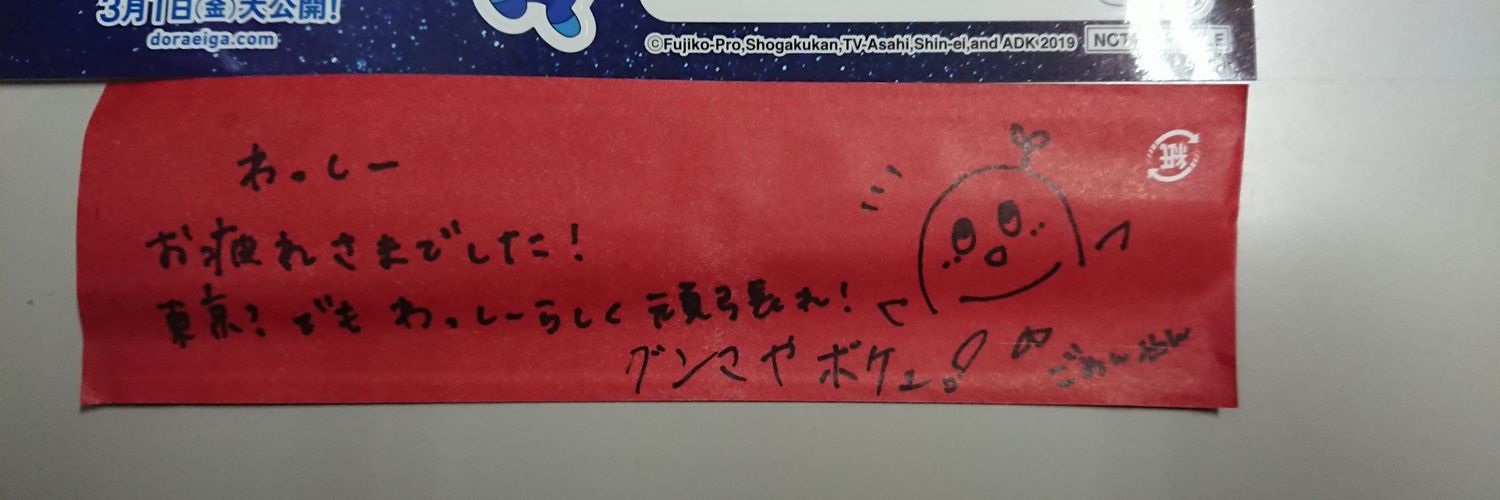 3月1日(金)大公開!
doraeiga.com
©Fujiko-Pro,Shogakukan,TV-Asahi,Shin-ei,and ADK 2019
NOT
紙
わっしー
お疲れさまでした!
東京?でもわっしーらしく頑張れ!
グンマやボケェ!
ごめんぶん